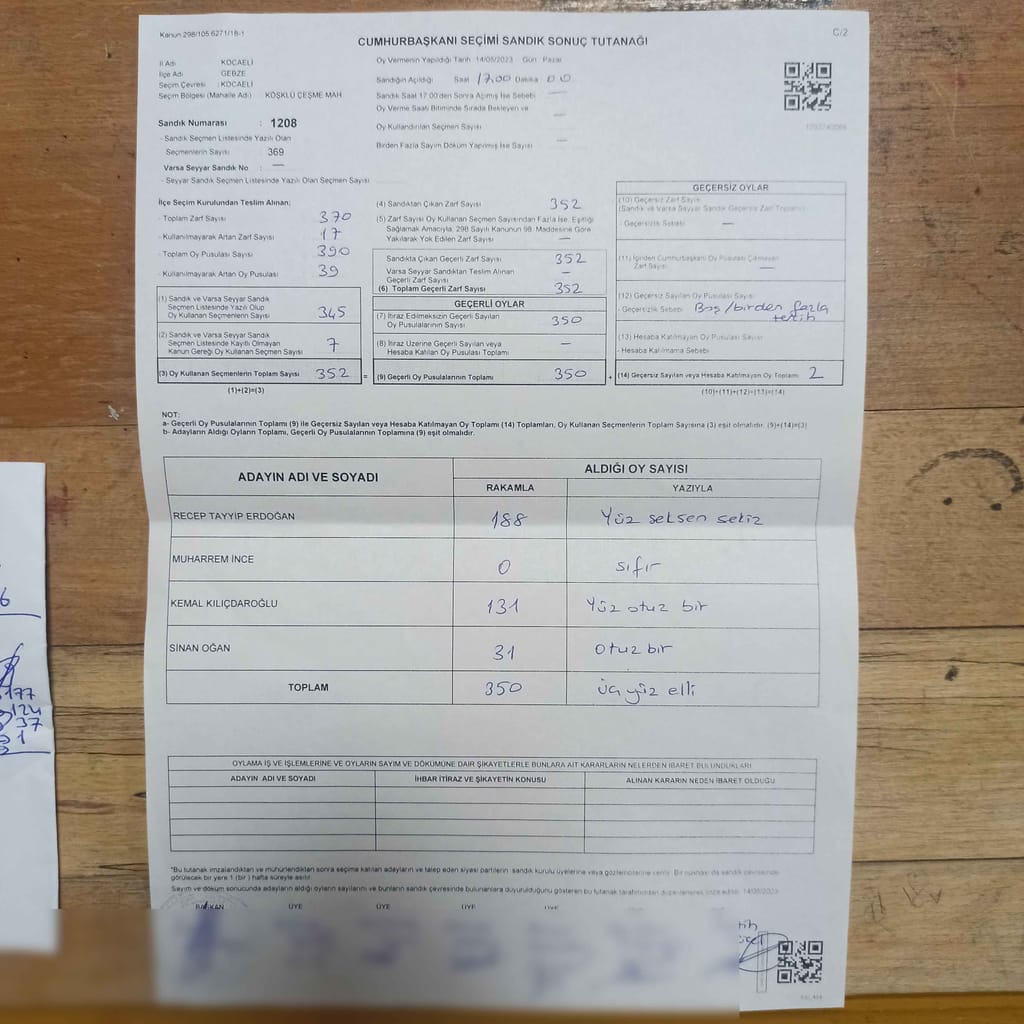 Kanun 298/105.6271/18-1
C/2
CUMHURBAŞKANI SEÇİMİ SANDIK SONUÇ TUTANAĞI
İl Adı KOCAELİ
İlçe Adı GEBZE
Seçim Çevresi : KOCAELİ
Seçim Bölgesi (Mahalle Adı) KÖŞKLÜ ÇEŞME MAH
Oy Vermenin Yapıldığı Tarih 14/05/2023 Gün Pazar
Sandığın Açıldığı Saat 17.00 Dakika 00
Sandık Saat 17.00'den Sonra Açılmış İse Sebebi —
Oy Verme Saati Bitiminde Sırada Bekleyen ve
Oy Kullandırılan Seçmen Sayısı —
Birden Fazla Sayım Döküm Yapılmış İse Sayısı —
Sandık Numarası : 1208
- Sandık Seçmen Listesinde Yazılı Olan
Seçmenlerin Sayısı 369
Varsa Seyyar Sandık No : —
- Seyyar Sandık Seçmen Listesinde Yazılı Olan Seçmen Sayısı
İlçe Seçim Kurulundan Teslim Alınan;
- Toplam Zarf Sayısı 370
- Kullanılmayarak Artan Zarf Sayısı 17
- Toplam Oy Pusulası Sayısı 390
- Kullanılmayarak Artan Oy Pusulası 39
(1) Sandık ve Varsa Seyyar Sandık
Seçmen Listesinde Yazılı Olup
Oy Kullanan Seçmenlerin Sayısı 345
(2) Sandık ve Varsa Seyyar Sandık
Seçmen Listesinde Kayıtlı Olmayan
Kanun Gereği Oy Kullanan Seçmen Sayısı 7
(3) Oy Kullanan Seçmenlerin Toplam Sayısı 352 =
(1)+(2)=(3)
(4) Sandıktan Çıkan Zarf Sayısı 352
(5) Zarf Sayısı Oy Kullanan Seçmen Sayısından Fazla İse, Eşitliği
Sağlamak Amacıyla, 298 Sayılı Kanunun 98. Maddesine Göre
Yakılarak Yok Edilen Zarf Sayısı —
Sandıkta Çıkan Geçerli Zarf Sayısı 352
Varsa Seyyar Sandıktan Teslim Alınan
Geçerli Zarf Sayısı —
(6) Toplam Geçerli Zarf Sayısı 352
GEÇERLİ OYLAR
(7) İtiraz Edilmeksizin Geçerli Sayılan
Oy Pusulalarının Sayısı 350
(8) İtiraz Üzerine Geçerli Sayılan veya
Hesaba Katılan Oy Pusulası Toplamı —
(9) Geçerli Oy Pusulalarının Toplamı 350 +
GEÇERSİZ OYLAR
(10) Geçersiz Zarf Sayısı
(Sandık ve Varsa Seyyar Sandık Geçersiz Zarf Toplamı)
- Geçersizlik Sebebi —
(11) İçinden Cumhurbaşkanı Oy Pusulası Çıkmayan
Zarf Sayısı —
(12) Geçersiz Sayılan Oy Pusulası Sayısı
- Geçersizlik Sebebi Boş/birden fazla
tercih
(13) Hesaba Katılmayan Oy Pusulası Sayısı
- Hesaba Katılmama Sebebi
(14) Geçersiz Sayılan veya Hesaba Katılmayan Oy Toplamı 2
(10)+(11)+(12)+(13)=(14)
NOT:
a- Geçerli Oy Pusulalarının Toplamı (9) ile Geçersiz Sayılan veya Hesaba Katılmayan Oy Toplamı (14) Toplamları, Oy Kullanan Seçmenlerin Toplam Sayısına (3) eşit olmalıdır. (9)+(14)=(3)
b- Adayların Aldığı Oyların Toplamı, Geçerli Oy Pusulalarının Toplamına (9) eşit olmalıdır.
ADAYIN ADI VE SOYADI
ALDIĞI OY SAYISI
RAKAMLA YAZIYLA
RECEP TAYYİP ERDOĞAN 188 Yüz seksen sekiz
MUHARREM İNCE 0 sıfır
KEMAL KILIÇDAROĞLU 131 Yüz otuz bir
SİNAN OĞAN 31 Otuz bir
TOPLAM 350 üç yüz elli
OYLAMA İŞ VE İŞLEMLERİNE VE OYLARIN SAYIM VE DÖKÜMÜNE DAİR ŞİKAYETLERLE BUNLARA AİT KARARLARIN NELERDEN İBARET BULUNDUKLARI
ADAYIN ADI VE SOYADI İHBAR İTİRAZ VE ŞİKAYETİN KONUSU ALINAN KARARIN NEDEN İBARET OLDUĞU
*Bu tutanak imzalandıktan ve mühürlendikten sonra seçime katılan adayların ve talep eden siyasi partilerin sandık kurulu üyelerine veya gözlemcilerine verilir. Bir nüshası da sandık çevresinde
görülecek bir yere 1 (bir) hafta süreyle asılır.
Sayım ve döküm sonucunda adayların aldığı oyların sayılarını ve bunların sandık çevresinde bulunanlara duyurulduğunu gösteren bu tutanak tarafımızdan düzenlenerek imza edildi. 14/05/2023
BAŞKAN ÜYE ÜYE ÜYE ÜYE
6
177
124
37
1